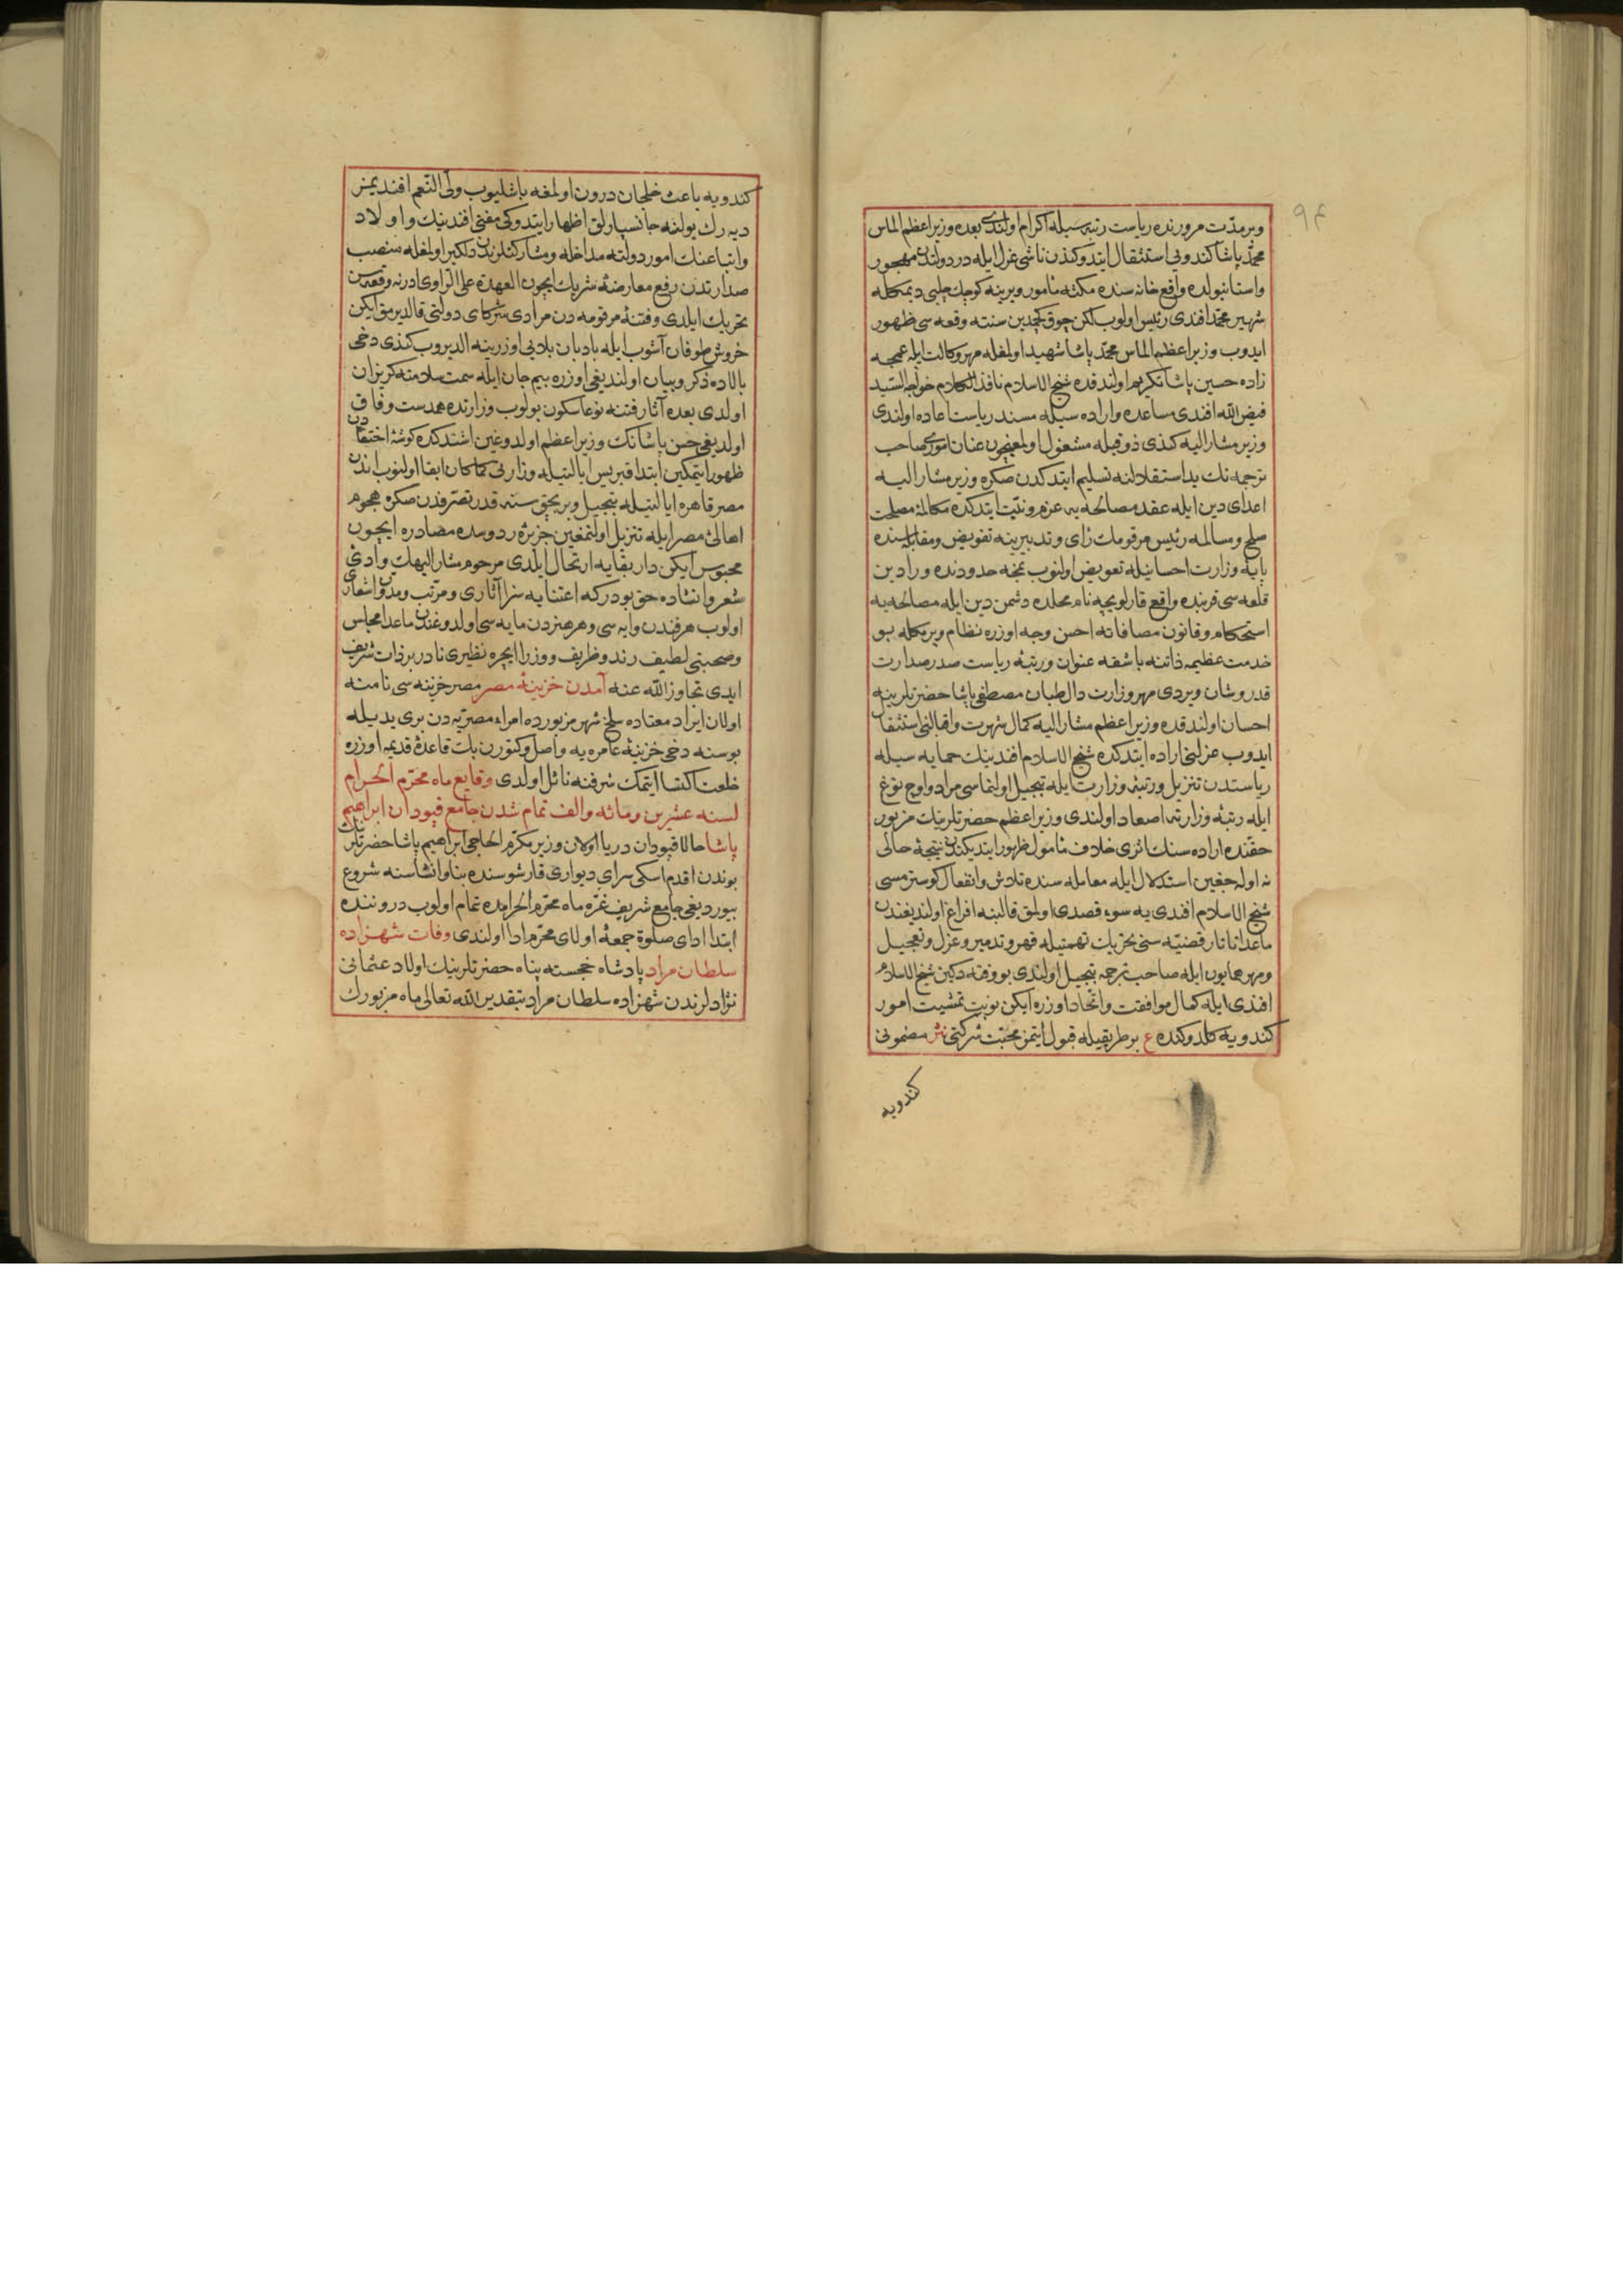 ٩٤
وبر مدت مرورنده ریاست رتبه‌سیله اکرام اولندی بعده وزیر اعظم الماس
محمد پاشا کندوبی استثقال ایتدوکندن ناشی عزل ایله در دولتدن مهجور
واستانبولده واقع خانه سنده مکثه مأمور ویرینه کوچك چلبی دیمکله
شهیر محمد افندی رئیس اولوب لکن چوق کچمدین سنته وقعه سی ظهور
ایدوب وزیر اعظم الماس محمد پاشا شهید اولمغله مهر وکالت ایله عمجه
زاده حسین پاشا تکریم اولندقده شیخ الاسلام نافذ الکلام خواجه السید
فیض الله افندی مساعده واراده سیله مسند ریاست اعاده اولندی
وزیر مشار الیه کندی ذوقیله مشغول اولمغیچون عنان اموری صاحب
ترجمه نك ید استقلالنه تسلیم ایتدکدن صکره وزیر مشار الیه
اعدای دین ایله عقد مصالحه یه عزم ونیت ایتدکده مکالمۀ مصلحت
صلح ومسالمه رئیس مرقومك رای وتدبیرینه تفویض ومقابله سنده
پایۀ وزارت احسانیله تعویض اولنوب نمچه حدودنده ورادین
قلعه سی قربنده واقع قارلویچه نام محلده دشمن دین ایله مصالحه یه
استحکام وقانون مصافاته احسن وجه اوزره نظام ویرمکله بو
خدمت عظیمه ذاتنه باشقه عنوان ورتبۀ ریاست صدر صدارت
قدر وشان ویردی مهر وزارت دال طبان مصطفی پاشا حضرتلرینه
احسان اولندقده وزیر اعظم مشار الیه کمال شهرت واقبالنی استثقال
ایدوب عزلنی اراده ایتدکده شیخ الاسلام افندینك حمایه سیله
ریاستدن تنزیل ورتبۀ وزارت ایله تبجیل اولنماسی مراد واوچ توغ
ایله رتبۀ وزارته اصعاد اولندی وزیر اعظم حضرتلرینك مزبور
حقنده اراده سنك اثری خلاف مأمول ظهور ایتدیکندن نتیجۀ حالی
نه اوله جغین استدلال ایله معامله سنده تلاش وانفعال کوسترمسی
شیخ الاسلام افندی یه سوء قصدی اولمق قالبنه افراغ اولندیغندن
ماعدا تاتار قضیه سنی تحریك تهمتیله قهر وتدمیر وعزل وتعجیل
ومهر همایون ایله صاحب ترجمه تبجیل اولندی بو وقته دکین شیخ الاسلام
افندی ایله کمال موافقت واتحاد اوزره ایکن نوبت تمشیت امور
کندویه کلدوکنده ع بر طریقیله قبول ایتمز محبت شرکتی نثر مضمونی
کندویه
کندویه باعث خلجان درون اولمغه باشلیوب ولی النعم افندیمز
دیه رك یولنه جانسپارلق اظهار ایتدوکی مفتی افندینك واولاد
واتباعنك امور دولته مداخله ومشارکتلرندن دلکیر اولمغله منصب
صدارتدن رفع معارضۀ شریك ایچون العهدة علی الراوی ادرنه وقعه سن
تحریك ایلدی وفتنۀ مرقومه دن مرادی شرکای دولتی قالدیرمق ایکن
خروش طوفان آشوب ایله بادبان بلایی اوزرینه الدیروب کندی دخی
بالاده ذکر وبیان اولندیغی اوزره بیم جان ایله سمت سلامته کریزان
اولدی بعده آثار فتنه نوعا سکون بولوب وزارتده همدست وفاق
اولدیغی حسن پاشانك وزیر اعظم اولدوغین اشتدکده کوشۀ اختفادن
ظهور ایتمکین ابتدا قبریس ایالتیله وزارتی کما کان ابقا اولنوب اندن
مصر قاهره ایالتیله تبجیل وبر بچق سنه قدر تصرفدن صکره هجوم
اهالئ مصر ایله تنزیل اولنمغین جزیرۀ ردوسده مصادره ایچون
محبوس ایکن دار بقایه ارتحال ایلدی مرحوم مشار الیهك وادئ
شعر وانشاده حق بودرکه اعتنایه سزا آثاری ومرتب ومدون اشعاری
اولوب هر فندن وایه سی وهر هنردن مایه سی اولدوغندن ماعدا مجلس
وصحبتی لطیف رند وظریف ووزرا ایچره نظیری نادر بر ذات شریف
ایدی تجاوز الله عنه آمدن خزینۀ مصر مصر خزینه سی نامنه
اولان ایراد معتاده سلخ شهر مزبورده امراء مصریه دن بری یدیله
بو سنه دخی خزینۀ عامره یه واصل وکتورن بك قاعدۀ قدیمه اوزره
خلعت اکتسا ایتمك شرفنه نائل اولدی وقایع ماه محرم الحرام
لسنه عشرین ومائه والف تمام شدن جامع قپودان ابراهیم
پاشا حالا قپودان دریا اولان وزیر مکرم الحاج ابراهیم پاشا حضرتلرینك
بوندن اقدم اسکی سرای دیواری قارشوسنده بنا وانشاسنه شروع
بیوردیغی جامع شریف غرۀ ماه محرم الحرامده تمام اولوب دروننده
ابتدا ادای صلوة جمعۀ اولای محرم ادا اولندی وفات شهزاده
سلطان مراد پادشاه خجسته پناه حضرتلرینك اولاد عثمانی
نژادلرندن شهزاده سلطان مراد بتقدیر الله تعالی ماه مزبورك